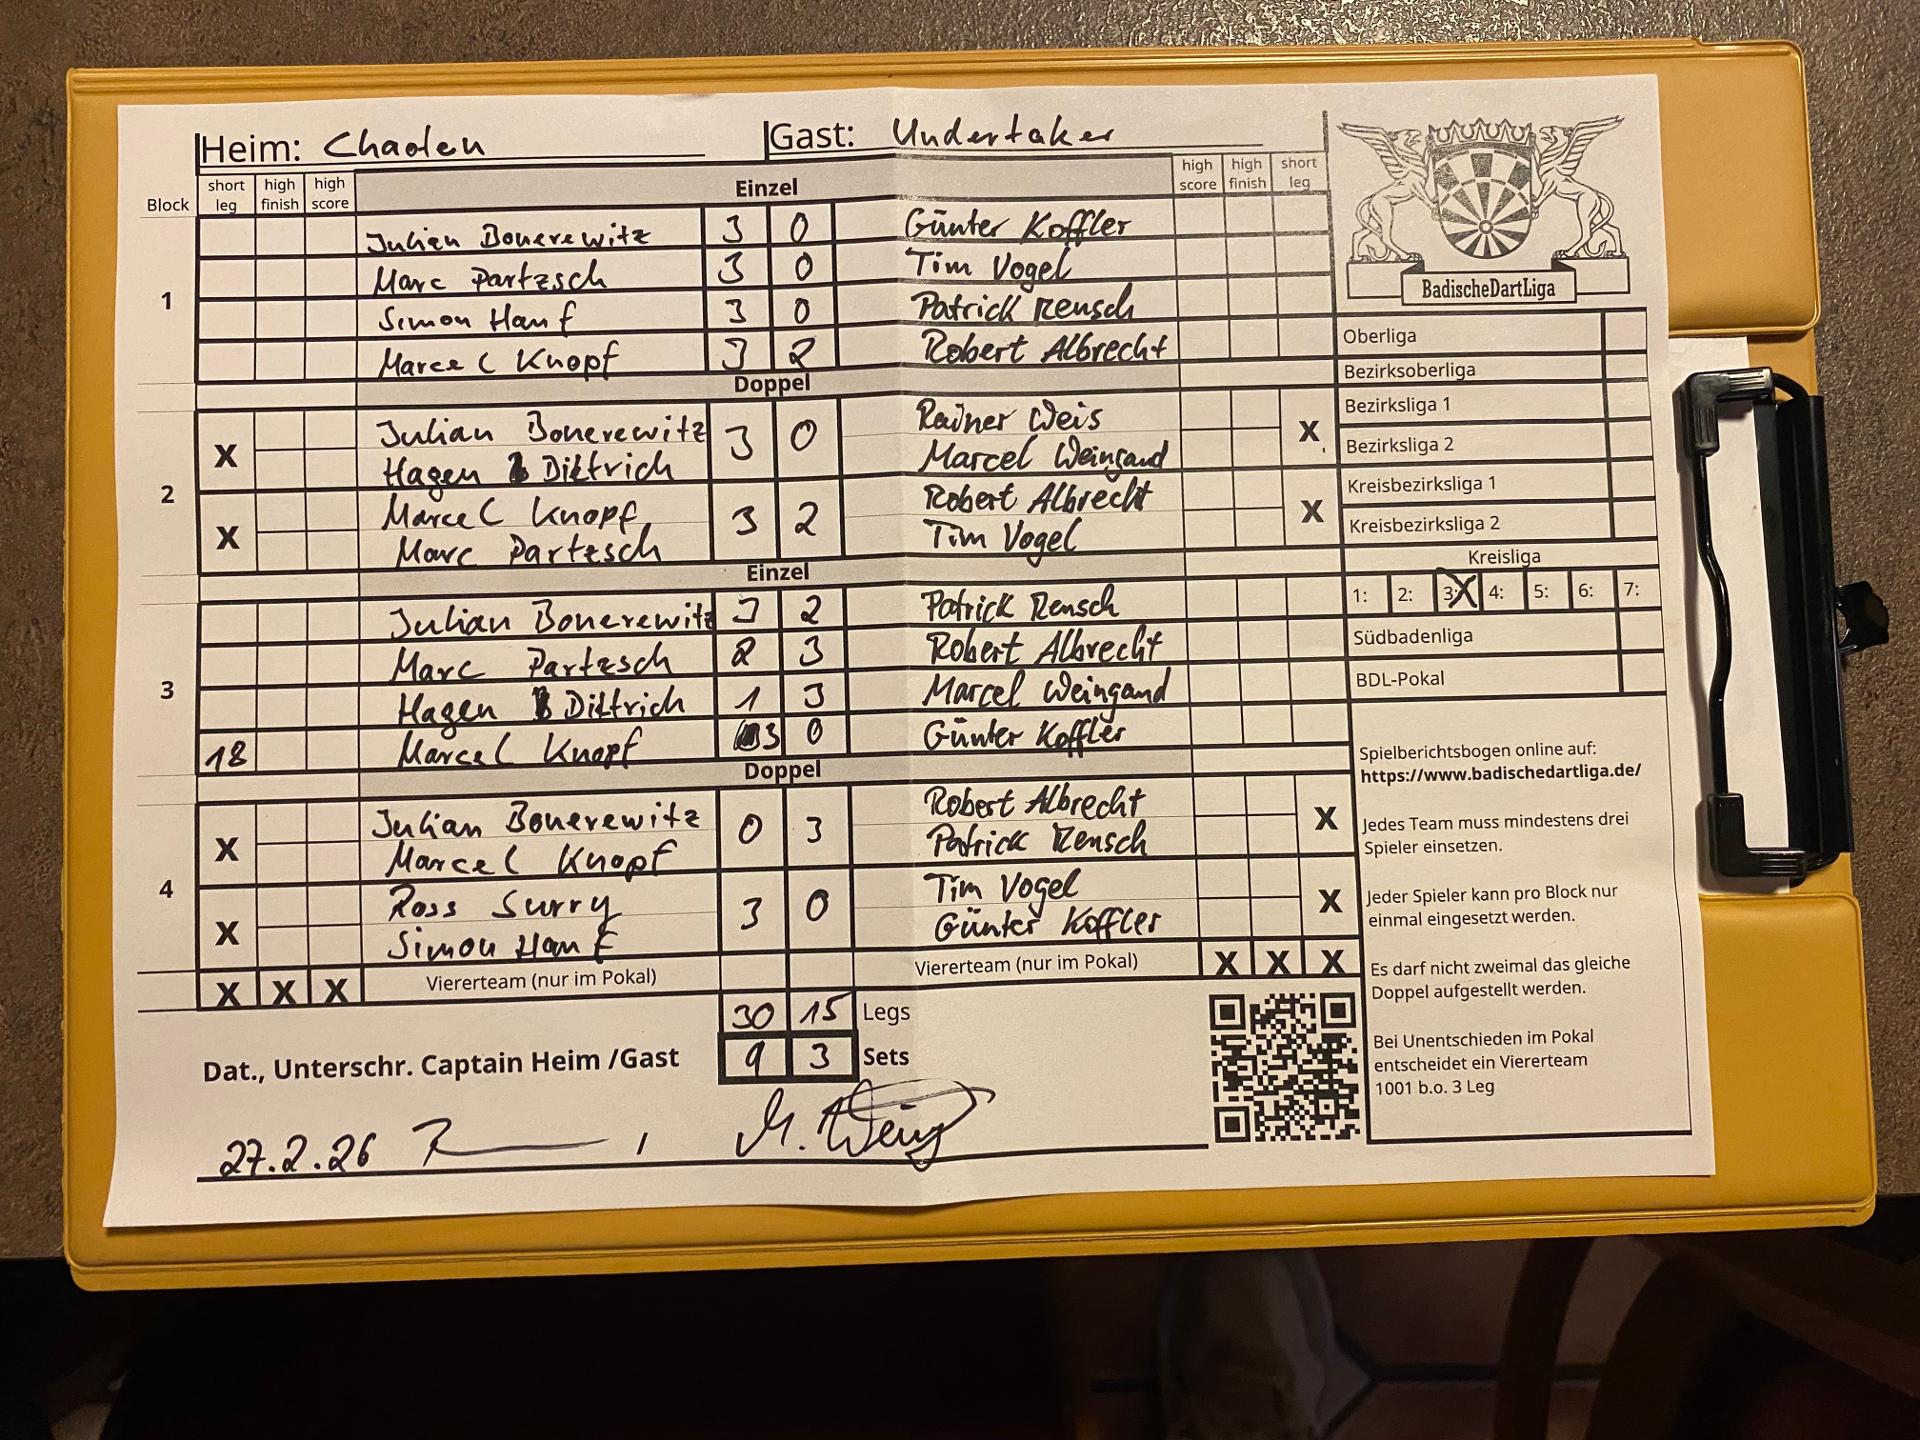 Heim: Chaoten Gast: Undertaker
Block short leg high finish high score Einzel high score high finish short leg
1
Julian Bonerewitz 3 0 Günter Koffler
Marc Partzsch 3 0 Tim Vogel
Simon Hanf 3 0 Patrick Rensch
Marcel Knopf 3 2 Robert Albrecht
Doppel
2
X Julian Bonerewitz 3 0 Rainer Weis X
Hagen Dittrich Marcel Weingand
X Marcel Knopf 3 2 Robert Albrecht X
Marc Partzsch Tim Vogel
Einzel
3
Julian Bonerewitz 3 2 Patrick Rensch
Marc Partzsch 2 3 Robert Albrecht
Hagen Dittrich 1 3 Marcel Weingand
18 Marcel Knopf 3 0 Günter Koffler
Doppel
4
X Julian Bonerewitz 0 3 Robert Albrecht X
Marcel Knopf Patrick Rensch
X Ross Surry 3 0 Tim Vogel X
Simon Hanf Günter Koffler
X X X Viererteam (nur im Pokal) Viererteam (nur im Pokal) X X X
30 15 Legs
Dat., Unterschr. Captain Heim /Gast 9 3 Sets
27.2.26
BadischeDartLiga
Oberliga
Bezirksoberliga
Bezirksliga 1
Bezirksliga 2
Kreisbezirksliga 1
Kreisbezirksliga 2
Kreisliga
1: 2: 3: X 4: 5: 6: 7:
Südbadenliga
BDL-Pokal
Spielberichtsbogen online auf:
https://www.badischedartliga.de/
Jedes Team muss mindestens drei
Spieler einsetzen.
Jeder Spieler kann pro Block nur
einmal eingesetzt werden.
Es darf nicht zweimal das gleiche
Doppel aufgestellt werden.
Bei Unentschieden im Pokal
entscheidet ein Viererteam
1001 b.o. 3 Leg